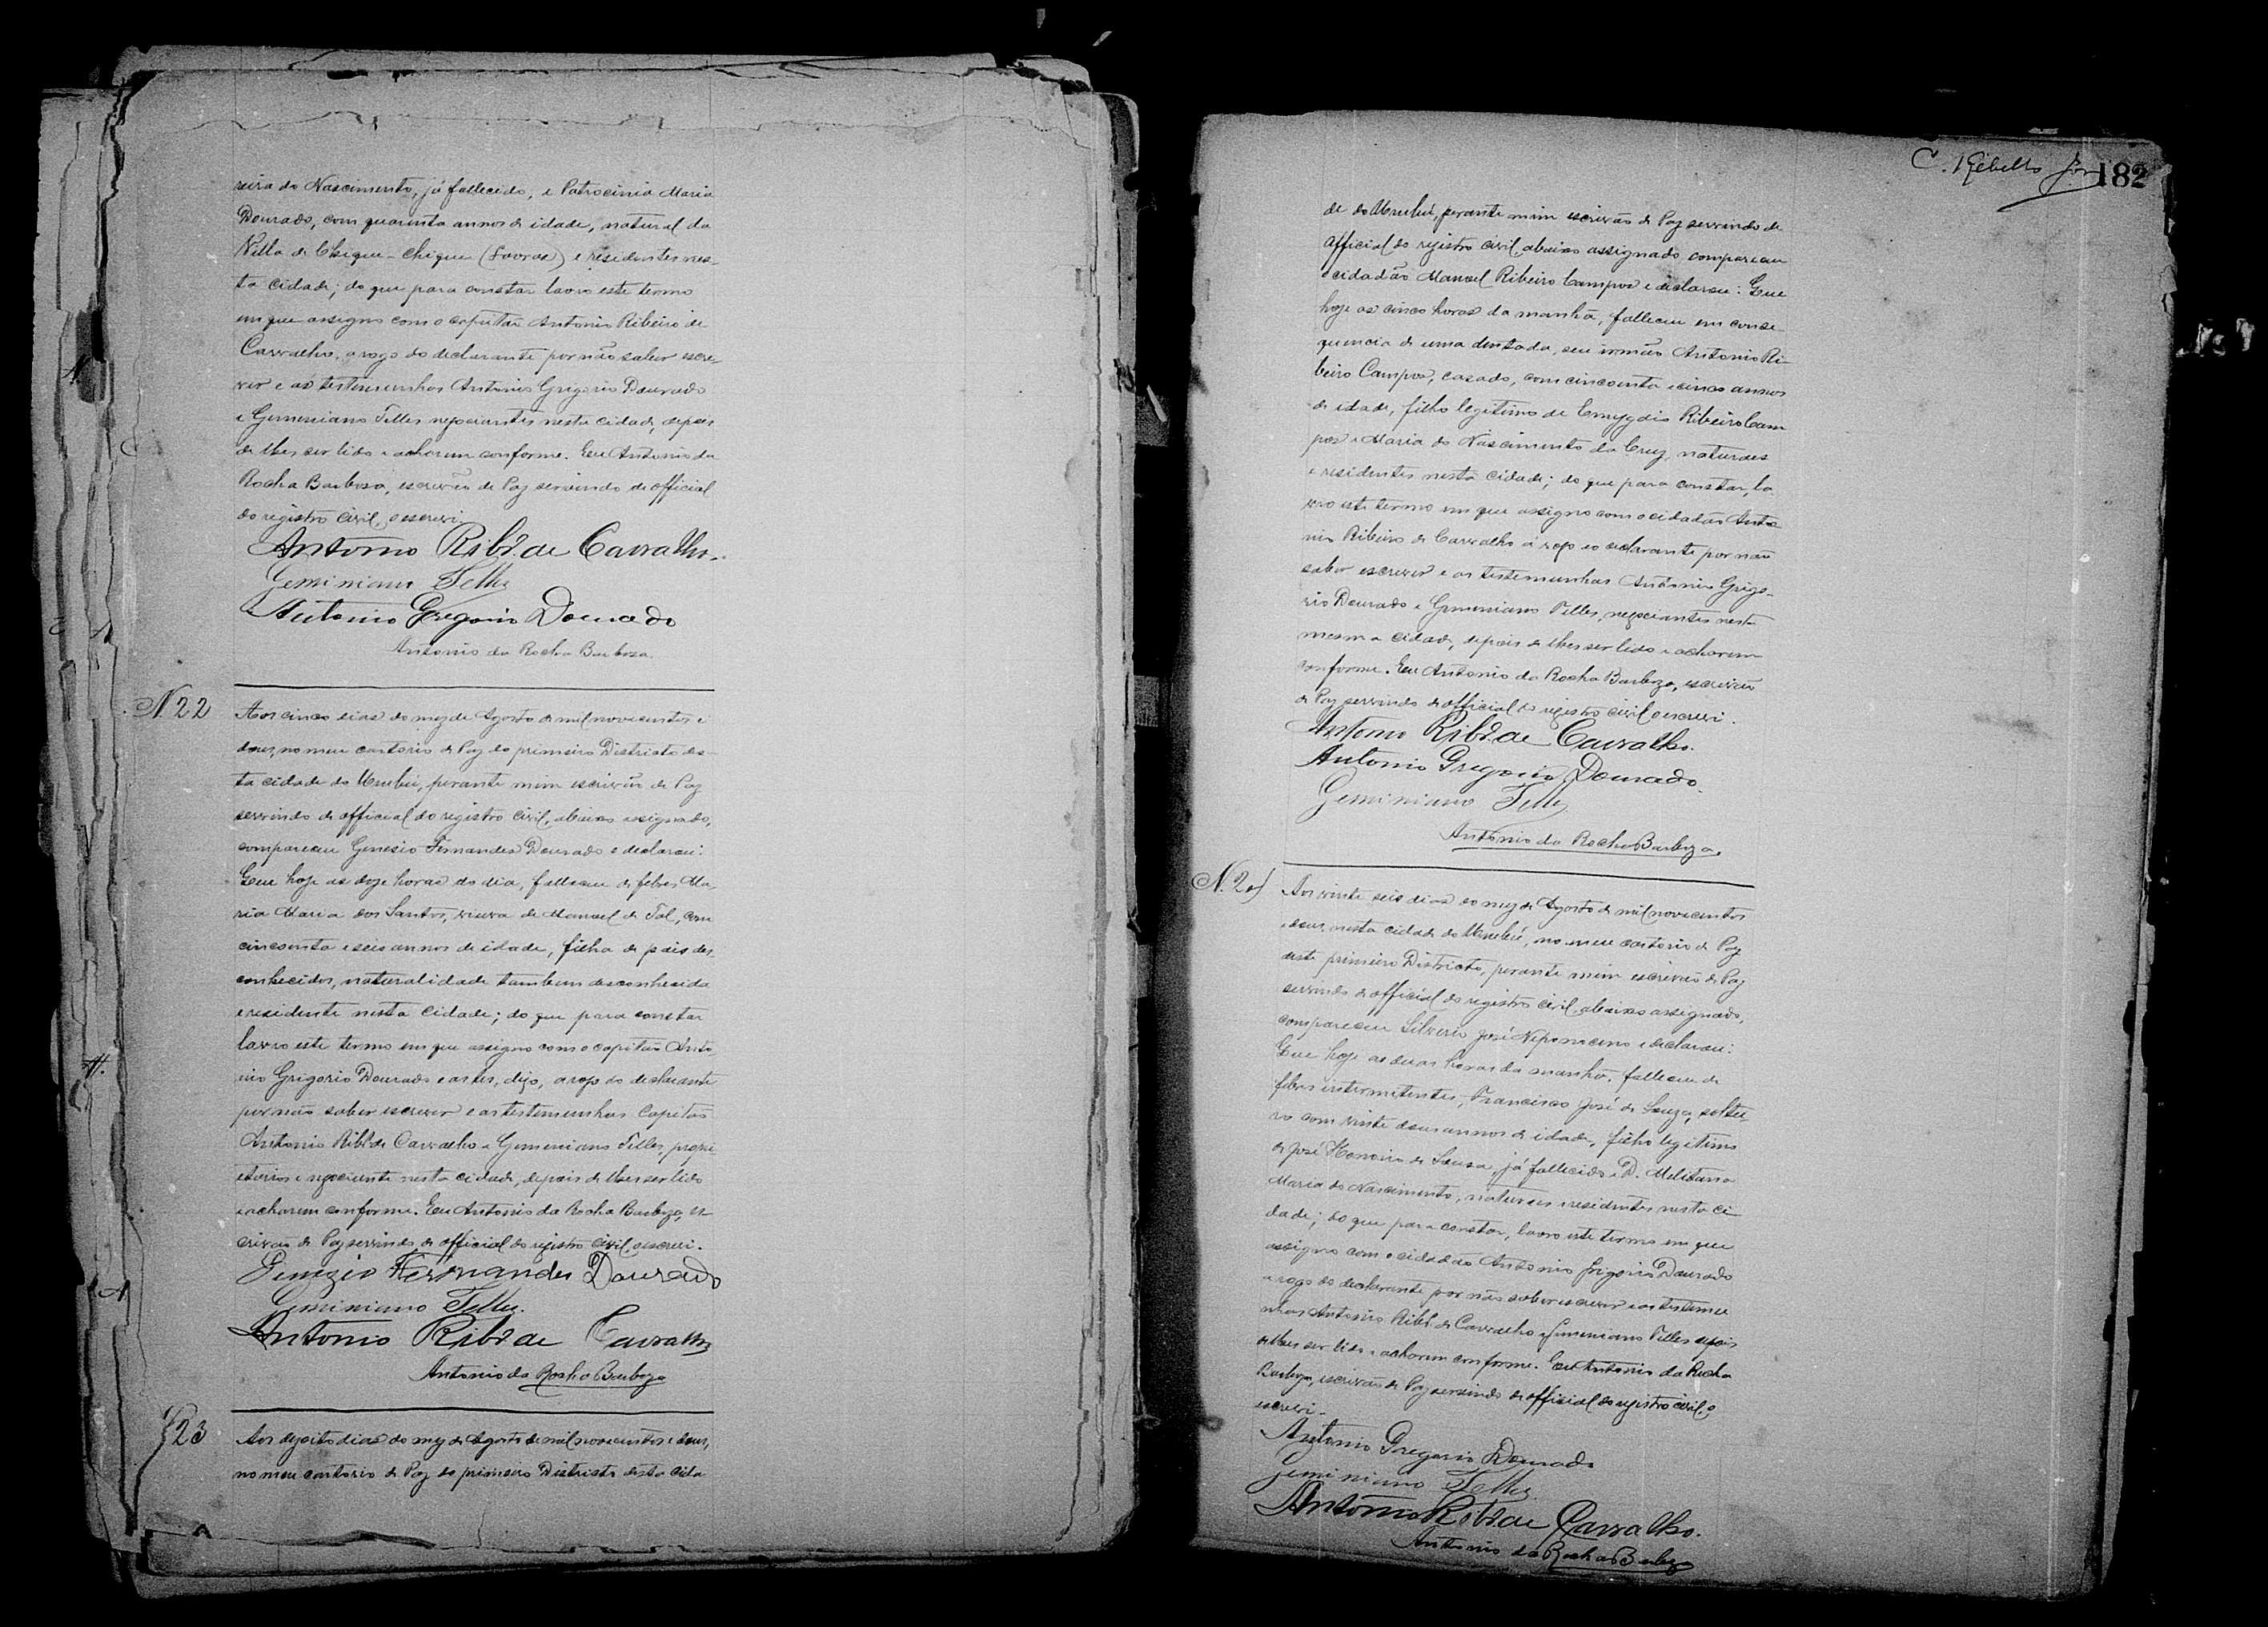 reira do Nascimento, já fallecido, e Patrocinia Maria
Dourado, com quarenta annos de idade, natural da
Villa de Chique-Chique (Lavras) e residentes nes-
ta cidade; do que para constar lavro este termo
em que assigno com o capitão Antonio Ribeiro de
Carvalho, a rogo do declarante por não saber escre-
ver e as testemunhas Antonio Grigorio Dourado
e Gemeniano Telles negociantes nesta cidade, depois
de lhes ser lido e acharem conforme. Eu Antonio da
Rocha Barboza, escrivão de Paz servindo de official
do registro civil, o escrevi.
Antonio Ribr de Carvalho.
Geminiano Telles
Antonio Gregorio Dourado
Antonio da Rocha Barboza
N. 22
Aos cinco dias do mez de Agosto de mil novecentos e
dous, no meu cartorio de Paz do primeiro Districto des-
ta cidade do Urubú, perante mim escrivão de Paz
servindo de official do registro civil, abaixo assignado,
compareceu Genesio Fernandes Dourado e declarou:
Que hoje as doze horas do dia, falleceu de febres, Ma-
ria Maria dos Santos, viuva de Manoel de Tal, com
cincoenta e seis annos de idade, filha de pais des-
conhecidos, naturalidade tambem desconhecida
e residente nesta cidade; do que para constar
lavro este termo em que assigno com o capitão Anto-
nio Grigorio Dourado e as tes, digo, a rogo do declarante
por não saber escrever e as testemunhas Capitão
Antonio Ribr de Carvalho e Gemeniano Telles, propri-
etarios e negociante nesta cidade, depois de lhes ser lido
e acharem conforme. Eu Antonio da Rocha Barboza, es-
crivão de Paz servindo de official do registro civil, o escrevi.
Genezio Fernandes Dourado
Geminiano Telles.
Antonio Ribr de Carvalho
Antonio da Rocha Barboza
23
Aos dezoito dias do mez de Agosto de mil novecentos e dous,
no meu cartorio de Paz do primeiro Districto desta cida-
C. Rebello Jor 182
de do Urubú, perante mim escrivão de Paz servindo de
official do registro civil, abaixo assignado compareceu
o cidadão Manoel Ribeiro Campos e declarou: Que
hoje as cinco horas da manhã, falleceu em conse-
quencia de uma dentada, seu irmão Antonio Ri-
beiro Campos, casado, com cincoenta e cinco annos
de idade, filho legitimo de Emygdio Ribeiro Cam-
pos e Maria do Nascimento da Cruz, naturaes
e residentes nesta cidade; do que para constar, la-
vro este termo em que assigno com o cidadão Anto-
nio Ribeiro de Carvalho a rogo do declarante por não
saber escrever e as testemunhas Antonio Grigo-
rio Dourado e Gemeniano Telles, negociantes nesta
mesma cidade, depois de lhes ser lido e acharem
conforme. Eu Antonio da Rocha Barboza, escrivão
de Paz servindo de official do registro civil o escrevi.
Antonio Ribr de Carvalho.
Antonio Gregorio Dourado.
Geminiano Telles
Antonio da Rocha Barboza.
N. 24
Aos vinte seis dias do mez de Agosto de mil novecentos
e dous, nesta cidade do Urubú, no meu cartorio de Paz
deste primeiro Districto, perante mim escrivão de Paz
servindo de official do registro civil, abaixo assignado,
compareceu Silverio José Neponuceno e declarou:
Que hoje as duas horas da manhã, falleceu de
febres intermitentes, Francisco José de Souza, soltei-
ro com vinte dous annos de idade, filho legitimo
de José Honorio de Sousa, já fallecido e D. Militana
Maria do Nascimento, naturaes e residentes nesta ci-
dade; do que para constar, lavro este termo em que
assigno com o cidadão Antonio Grigorio Dourado
a rogo do declarante por não saber escrever e as testemu-
nhas Antonio Ribr de Carvalho e Gemeniano Telles depois
de lhes ser lido e acharem conforme. Eu Antonio da Rocha
Barboza, escrivão de Paz servindo de official do registro civil, o
escrevi.
Antonio Gregorio Dourado
Geminiano Telles
Antonio Ribr de Carvalho.
Antonio da Rocha Barboza